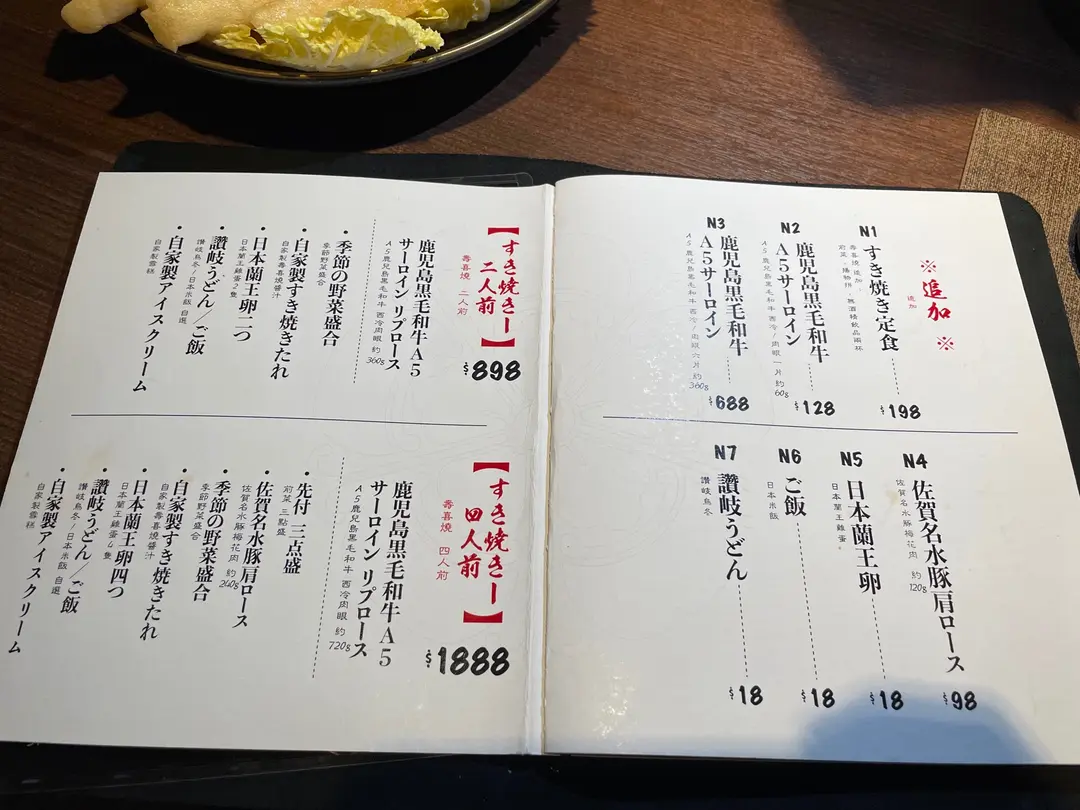 ※追加※
追加
N1
すき焼き定食
壽喜燒追加
前菜、揚物拼、無酒精飲品兩杯
$198
N2
鹿児島黒毛和牛
A5サーロイン
A5鹿兒島黑毛和牛 西冷/肉眼一片 約60g
$128
N3
鹿児島黒毛和牛
A5サーロイン
A5鹿兒島黑毛和牛 西冷/肉眼六片 約360g
$688
N4
佐賀名水豚肩ロース
佐賀名水豚梅花肉 約120g
$98
N5
日本蘭王卵
日本蘭王雞蛋
$18
N6
ご飯
日本米飯
$18
N7
讃岐うどん
讚岐烏冬
$18
【すき焼きー二人前】
壽喜燒 二人前
$898
鹿児島黒毛和牛A5
サーロイン リブロース
A5鹿兒島黑毛和牛 西冷肉眼 約360g
・季節の野菜盛合
季節野菜盛合
・自家製すき焼きたれ
自家製壽喜燒醬汁
・日本蘭王卵二つ
日本蘭王雞蛋2隻
・讃岐うどん/ご飯
讚岐烏冬/日本米飯 自選
・自家製アイスクリーム
自家製雪糕
【すき焼きー四人前】
壽喜燒 四人前
$1888
鹿児島黒毛和牛A5
サーロイン リブロース
A5鹿兒島黑毛和牛 西冷肉眼 約720g
・先付 三点盛
前菜 三點盛
・佐賀名水豚肩ロース
佐賀名水豚梅花肉 約240g
・季節の野菜盛合
季節野菜盛合
・自家製すき焼きたれ
自家製壽喜燒醬汁
・日本蘭王卵四つ
日本蘭王雞蛋4隻
・讃岐うどん/ご飯
讚岐烏冬/日本米飯 自選
・自家製アイスクリーム
自家製雪糕